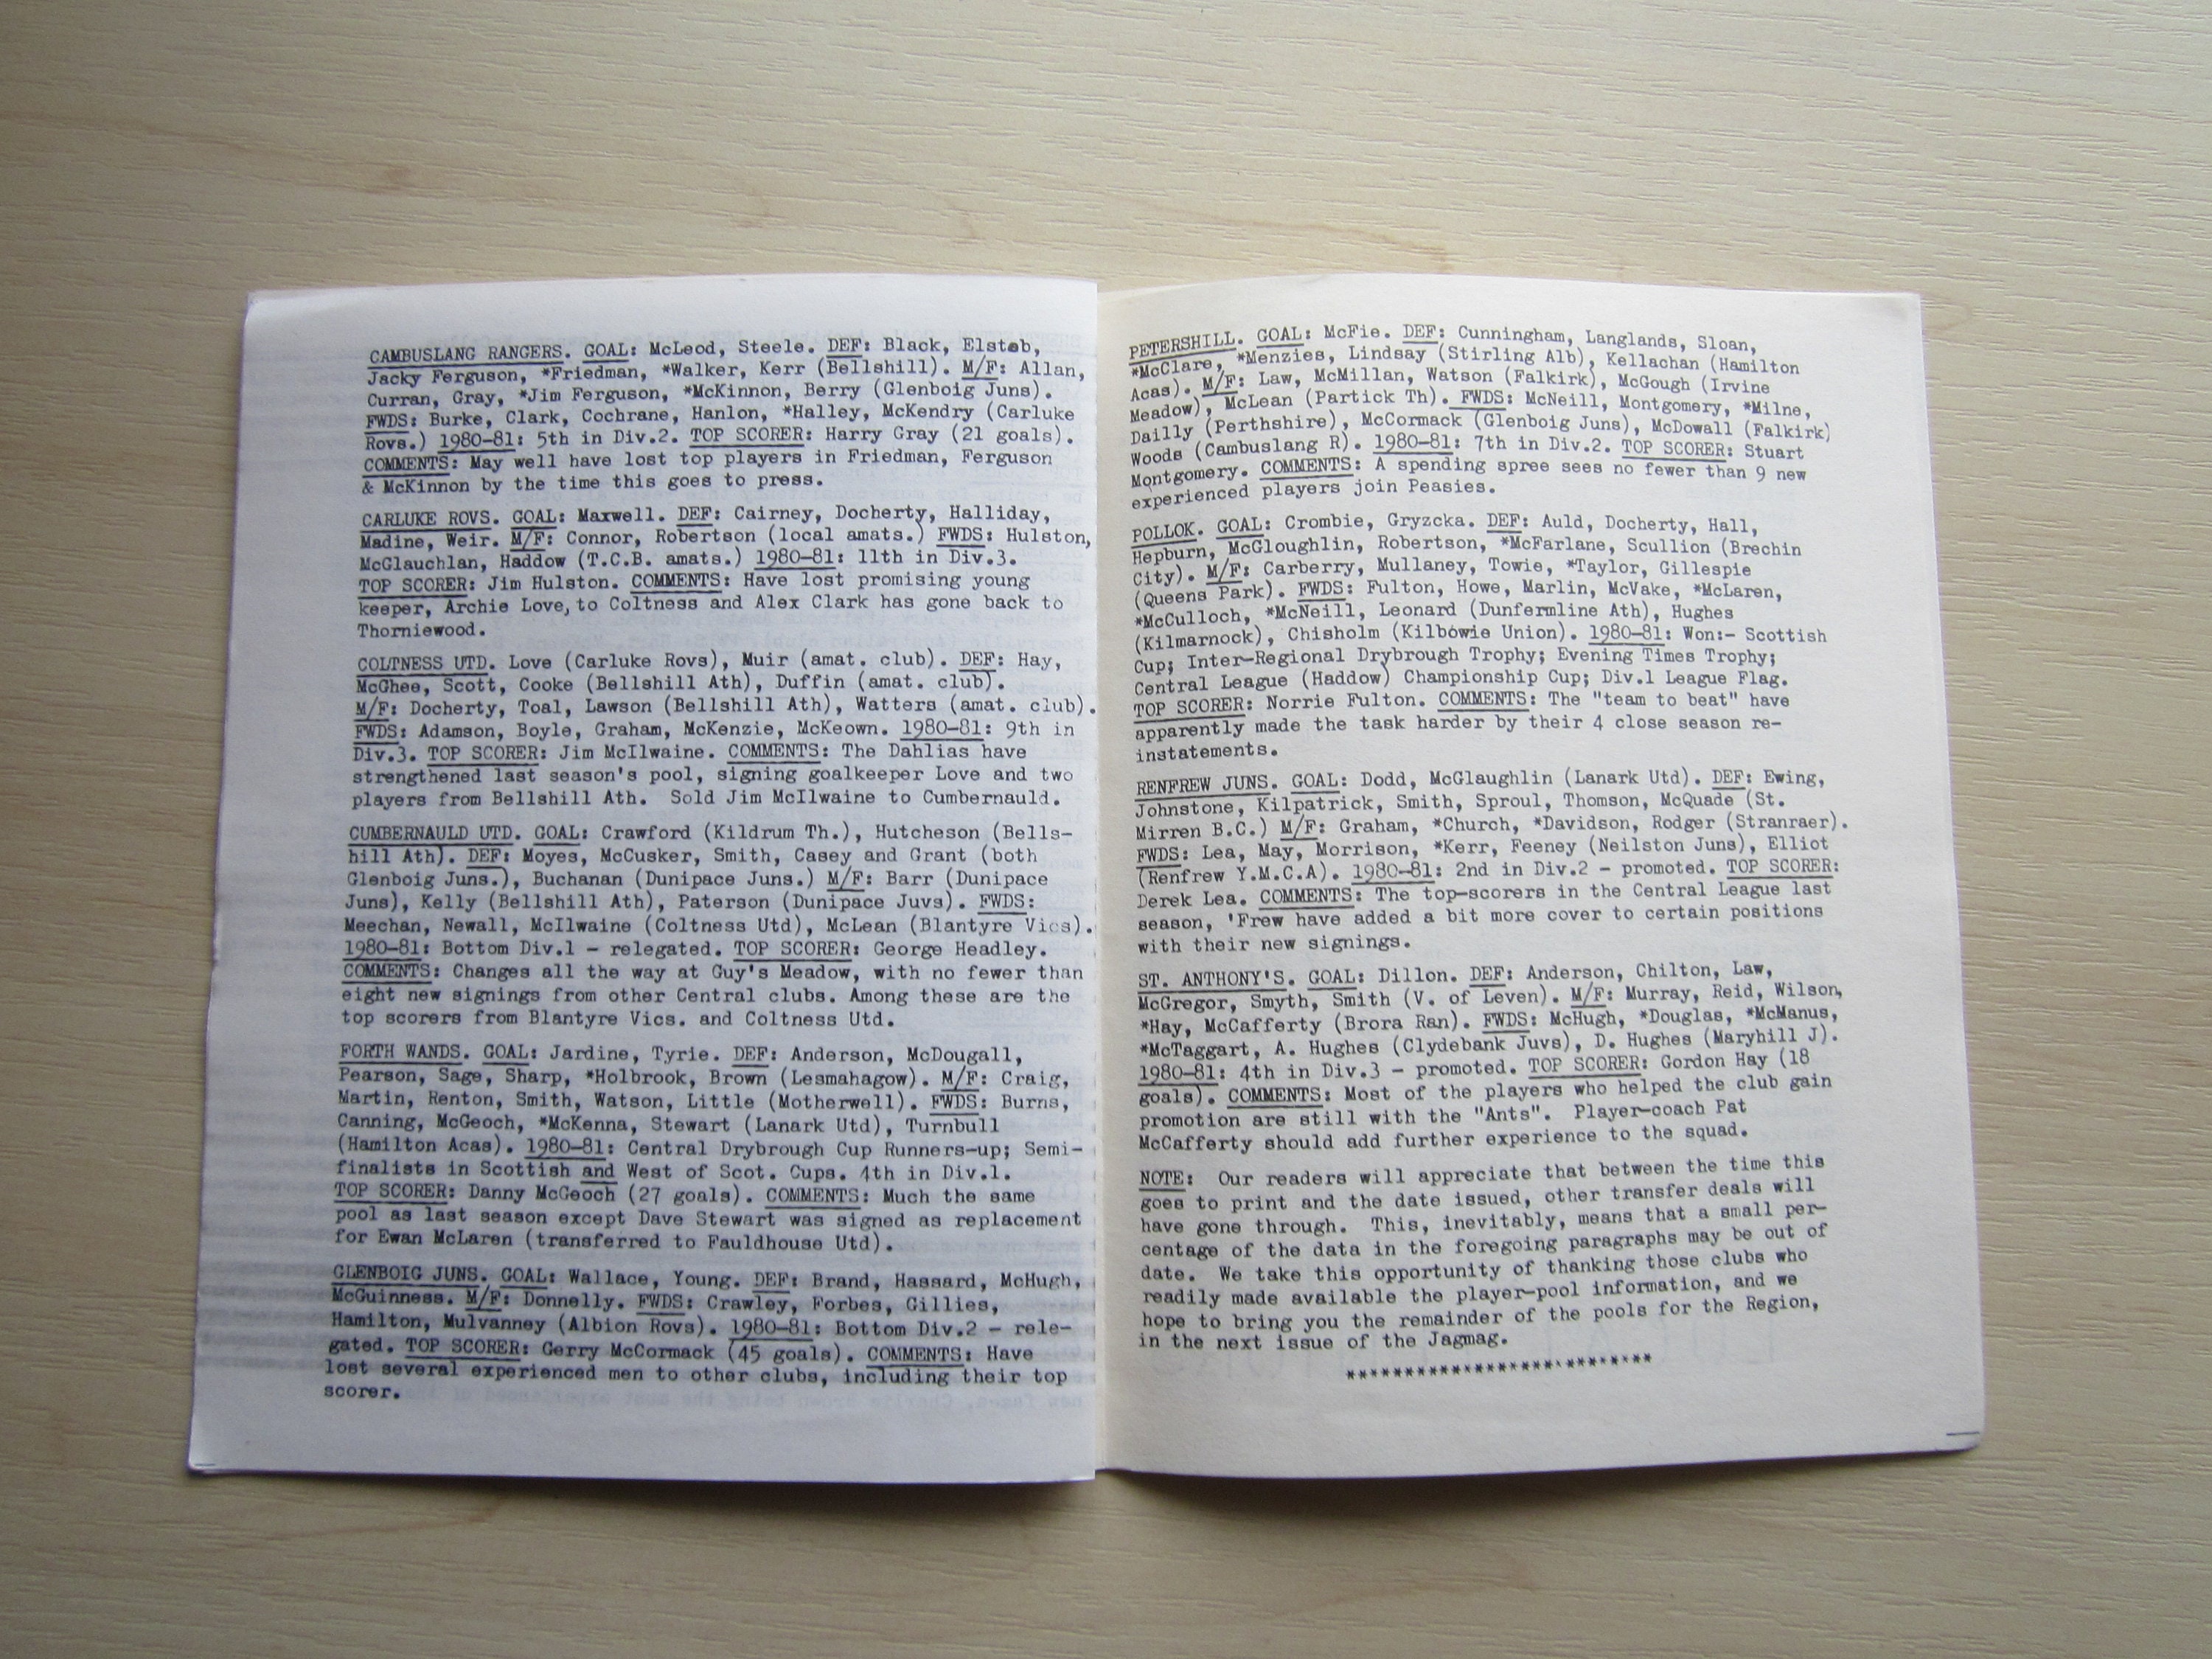 CAMBUSLANG RANGERS. GOAL: McLeod, Steele. DEF: Black, Elstob,
Jacky Ferguson, *Friedman, *Walker, Kerr (Bellshill). M/F: Allan,
Curran, Gray, *Jim Ferguson, *McKinnon, Berry (Glenboig Juns).
FWDS: Burke, Clark, Cochrane, Hanlon, *Halley, McKendry (Carluke
Rovs.) 1980-81: 5th in Div.2. TOP SCORER: Harry Gray (21 goals).
COMMENTS: May well have lost top players in Friedman, Ferguson
& McKinnon by the time this goes to press.
CARLUKE ROVS. GOAL: Maxwell. DEF: Cairney, Docherty, Halliday,
Madine, Weir. M/F: Connor, Robertson (local amats.) FWDS: Hulston,
McGlauchlan, Haddow (T.C.B. amats.) 1980-81: 11th in Div.3.
TOP SCORER: Jim Hulston. COMMENTS: Have lost promising young
keeper, Archie Love, to Coltness and Alex Clark has gone back to
Thorniewood.
COLTNESS UTD. Love (Carluke Rovs), Muir (amat. club). DEF: Hay,
McGhee, Scott, Cooke (Bellshill Ath), Duffin (amat. club).
M/F: Docherty, Toal, Lawson (Bellshill Ath), Watters (amat. club).
FWDS: Adamson, Boyle, Graham, McKenzie, McKeown. 1980-81: 9th in
Div.3. TOP SCORER: Jim McIlwaine. COMMENTS: The Dahlias have
strengthened last season's pool, signing goalkeeper Love and two
players from Bellshill Ath. Sold Jim McIlwaine to Cumbernauld.
CUMBERNAULD UTD. GOAL: Crawford (Kildrum Th.), Hutcheson (Bells-
hill Ath). DEF: Moyes, McCusker, Smith, Casey and Grant (both
Glenboig Juns.), Buchanan (Dunipace Juns.) M/F: Barr (Dunipace
Juns), Kelly (Bellshill Ath), Paterson (Dunipace Juvs). FWDS:
Meechan, Newall, McIlwaine (Coltness Utd), McLean (Blantyre Vics).
1980-81: Bottom Div.1 - relegated. TOP SCORER: George Headley.
COMMENTS: Changes all the way at Guy's Meadow, with no fewer than
eight new signings from other Central clubs. Among these are the
top scorers from Blantyre Vics. and Coltness Utd.
FORTH WANDS. GOAL: Jardine, Tyrie. DEF: Anderson, McDougall,
Pearson, Sage, Sharp, *Holbrook, Brown (Lesmahagow). M/F: Craig,
Martin, Renton, Smith, Watson, Little (Motherwell). FWDS: Burns,
Canning, McGeoch, *McKenna, Stewart (Lanark Utd), Turnbull
(Hamilton Acas). 1980-81: Central Drybrough Cup Runners-up; Semi-
finalists in Scottish and West of Scot. Cups. 4th in Div.1.
TOP SCORER: Danny McGeoch (27 goals). COMMENTS: Much the same
pool as last season except Dave Stewart was signed as replacement
for Ewan McLaren (transferred to Fauldhouse Utd).
GLENBOIG JUNS. GOAL: Wallace, Young. DEF: Brand, Hassard, McHugh,
McGuinness. M/F: Donnelly. FWDS: Crawley, Forbes, Gillies,
Hamilton, Mulvanney (Albion Rovs). 1980-81: Bottom Div.2 - rele-
gated. TOP SCORER: Gerry McCormack (45 goals). COMMENTS: Have
lost several experienced men to other clubs, including their top
scorer.
PETERSHILL. GOAL: McFie. DEF: Cunningham, Langlands, Sloan,
*McClare, *Menzies, Lindsay (Stirling Alb), Kellachan (Hamilton
Acas). M/F: Law, McMillan, Watson (Falkirk), McGough (Irvine
Meadow), McLean (Partick Th). FWDS: McNeill, Montgomery, *Milne,
Dailly (Perthshire), McCormack (Glenboig Juns), McDowall (Falkirk)
Woods (Cambuslang R). 1980-81: 7th in Div.2. TOP SCORER: Stuart
Montgomery. COMMENTS: A spending spree sees no fewer than 9 new
experienced players join Peasies.
POLLOK. GOAL: Crombie, Gryzcka. DEF: Auld, Docherty, Hall,
Hepburn, McGloughlin, Robertson, *McFarlane, Scullion (Brechin
City). M/F: Carberry, Mullaney, Towie, *Taylor, Gillespie
(Queens Park). FWDS: Fulton, Howe, Marlin, McVake, *McLaren,
*McCulloch, *McNeill, Leonard (Dunfermline Ath), Hughes
(Kilmarnock), Chisholm (Kilbowie Union). 1980-81: Won:- Scottish
Cup; Inter-Regional Drybrough Trophy; Evening Times Trophy;
Central League (Haddow) Championship Cup; Div.1 League Flag.
TOP SCORER: Norrie Fulton. COMMENTS: The "team to beat" have
apparently made the task harder by their 4 close season re-
instatements.
RENFREW JUNS. GOAL: Dodd, McGlaughlin (Lanark Utd). DEF: Ewing,
Johnstone, Kilpatrick, Smith, Sproul, Thomson, McQuade (St.
Mirren B.C.) M/F: Graham, *Church, *Davidson, Rodger (Stranraer).
FWDS: Lea, May, Morrison, *Kerr, Feeney (Neilston Juns), Elliot
(Renfrew Y.M.C.A). 1980-81: 2nd in Div.2 - promoted. TOP SCORER:
Derek Lea. COMMENTS: The top-scorers in the Central League last
season, 'Frew have added a bit more cover to certain positions
with their new signings.
ST. ANTHONY'S. GOAL: Dillon. DEF: Anderson, Chilton, Law,
McGregor, Smyth, Smith (V. of Leven). M/F: Murray, Reid, Wilson,
*Hay, McCafferty (Brora Ran). FWDS: McHugh, *Douglas, *McManus,
*McTaggart, A. Hughes (Clydebank Juvs), D. Hughes (Maryhill J).
1980-81: 4th in Div.3 - promoted. TOP SCORER: Gordon Hay (18
goals). COMMENTS: Most of the players who helped the club gain
promotion are still with the "Ants". Player-coach Pat
McCafferty should add further experience to the squad.
NOTE: Our readers will appreciate that between the time this
goes to print and the date issued, other transfer deals will
have gone through. This, inevitably, means that a small per-
centage of the data in the foregoing paragraphs may be out of
date. We take this opportunity of thanking those clubs who
readily made available the player-pool information, and we
hope to bring you the remainder of the pools for the Region,
in the next issue of the Jagmag.
**************************